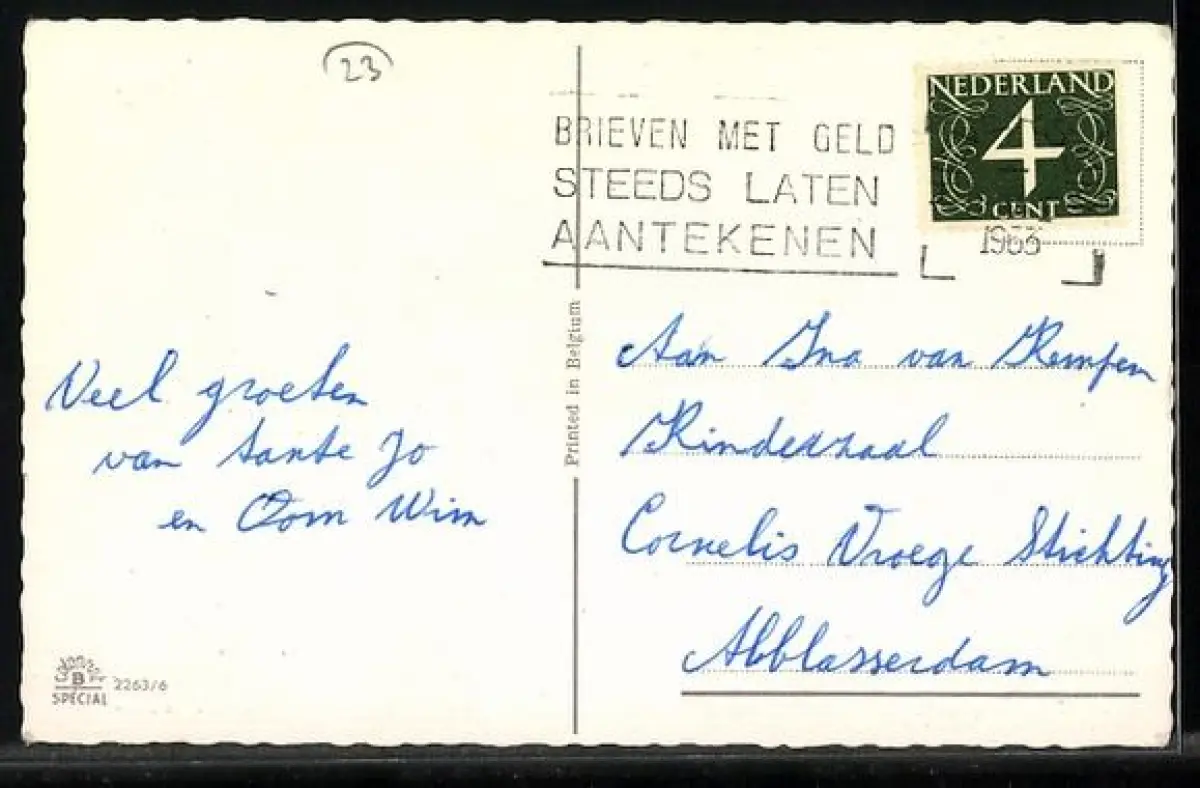 23
BRIEVEN MET GELD
STEEDS LATEN
AANTEKENEN
NEDERLAND
4
CENT
1963
Printed in Belgium
Veel groeten
van tante Jo
en Oom Wim
Aan Ina van Kempen
Kinderzaal
Cornelis Vroege Stichting
Abblasserdam
B
SPECIAL
2263/6